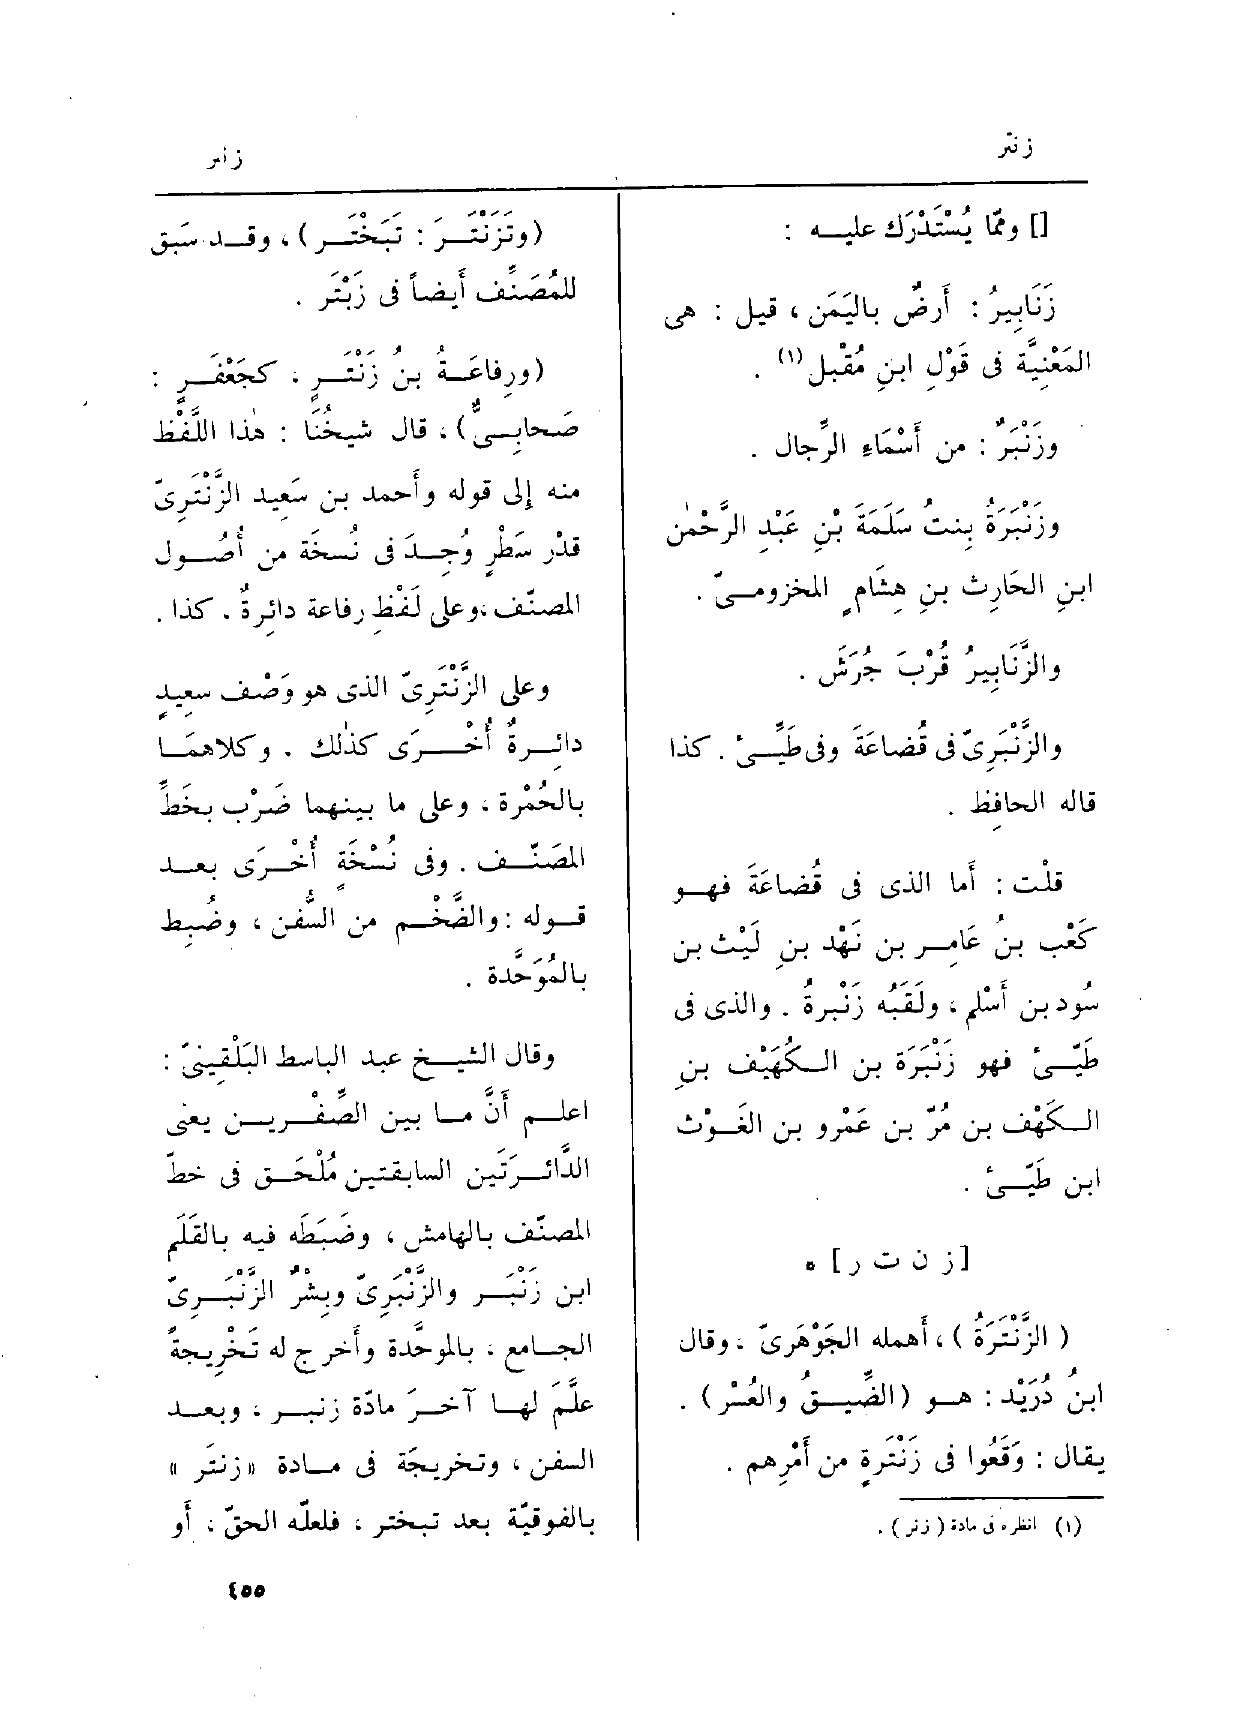 زنتر
زنتر
[] وممّا يُسْتَدْرَك عليه :
زَنَابِيرُ : أَرضٌ باليَمَن ، قيل : هى
المَعْنِيَّة فى قَوْل ابنِ مُقْبِل (١) .
وزَنْبَرٌ : من أَسْمَاءِ الرِّجال .
وزَنْبَرَةُ بِنتُ سَلَمَةَ بْنِ عَبْدِ الرَّحْمٰن
ابنِ الحَارِث بنِ هِشَامٍ المخزومىّ .
والزَّنَابِيرُ قُرْبَ جُرَشَ .
والزَّنْبَرِىّ فى قُضاعَةَ وفى طَيِّىءْ . كذا
قاله الحافِظ .
قلْت : أَما الذى فى قُضاعَةَ فهو
كَعْب بنُ عَامِر بن نَهْد بنِ لَيْث بن
سُود بن أَسْلم ، ولَقَبُه زَنْبرةُ . والذى فى
طَيِّىءْ فهو زَنْبَرَة بن الكُهَيْف بنِ
الكَهْف بن مُرّ بن عَمْرو بن الغَوْث
ابن طَيِّىءْ .
[ز ن ت ر] *
( الزَّنْتَرَةُ ) ، أَهمله الجَوْهَرِىّ ، وقال
ابنُ دُرَيْد : هو (الضِّيقُ والعُسْر) .
يقال : وَقَعُوا فى زَنْتَرةٍ من أَمْرِهم .
(١) انظره فى مادة ( زنر ) .
(وتَزَنْتَرَ : تَبَخْتَر) ، وقد سَبَق
للمُصَنِّف أَيضاً فى زَبْتَر .
(ورِفاعَةُ بنُ زَنْتَرٍ ، كجَعْفَرٍ :
صَحابِىٌّ) ، قال شيخُنَا : هٰذا اللَّفْظ
منه إِلى قوله وأَحمد بن سَعِيد الزَّنْتَرِىّ
قدْر سَطْرٍ وُجِدَ فى نُسخَة من أُصُول
المصنّف ،وعلى لَفْظِ رِفاعة دائرةٌ . كذا .
وعلى الزَّنْتَرِىّ الذى هو وَصْف سعِيدٍ
دائِرةٌ أُخْرَى كذٰلك . وكلاهمَا
بالحُمْرة ، وعلى ما بينهما ضَرْب بخَطِّ
المصَنِّف . وفى نُسْخَة أُخْرَى بعد
قوله : والضَّخْم من السُّفن ، وضُبِط
بالمُوَحَّدة .
وقال الشيخ عبد الباسط البَلْقِينىّ :
اعلم أَنَّ ما بين الصِّفْرين يعنى
الدَّائرَتَين السابقتين مُلْحَق فى خطّ
المصنّف بالهامش ، وضَبَطَه فيه بالقَلَم
ابن زَنْبَر والزَّنْبَرِىّ وبِشْرٌ الزَّنْبَرِىّ
الجامع ، بالموحَّدة وأَخرج له تَخْرِيجةً
علَّمَ لها آخرَ مادّة زنبر ، وبعد
السفن ، وتخريجَة فى مادة «زنتَر »
بالفوقيّة بعد تبختر ، فلعلّه الحقّ ، أَو
٤٥٥